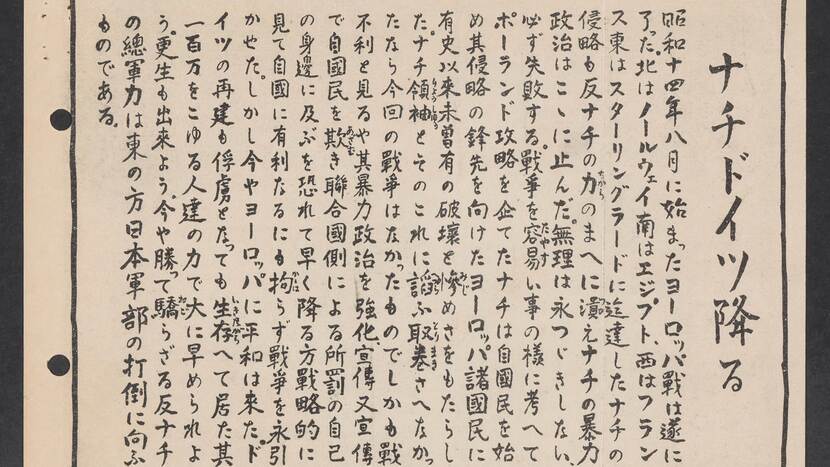 ナチドイツ降る
昭和十四年八月に始まったヨーロッパ戦は遂に
了った。北はノールウェイ南はエジプト、西はフラン
ス東はスターリングラードに迄達したナチの
侵略も反ナチの力のまへに潰えナチの暴力
政治はこゝに止んだ。無理は永つゞきしない、
必ず失敗する。戦爭を容易い事の様に考へて
ポーランド攻略を企てたナチは自國民を始
め其侵略の鋒先を向けたヨーロッパ諸國民に
有史以来未曽有の破壊と惨めさをもたらし
た。ナチ領袖とそのこれに諂ふ取巻さへなかっ
たなら今回の戦爭はなかったものでしかも戦
不利と見るや其暴力政治を強化、宣傳又宣傳
で自國民を欺き聯合國側による所罰の自己
の身邊に及ぶを恐れて早く降る方戦略的に
見て自國に有利なるにも拘らず戦爭を永引
かせた。しかし今やヨーロッパに平和は来た。ド
イツの再建も俘虜となっても生存へて居た其
一百万をこゆる人達の力で大に早められよ
う。更生も出来よう。今や勝って驕らざる反ナチ
の總軍力は東の方日本軍部の打倒に向ふ
ものである。